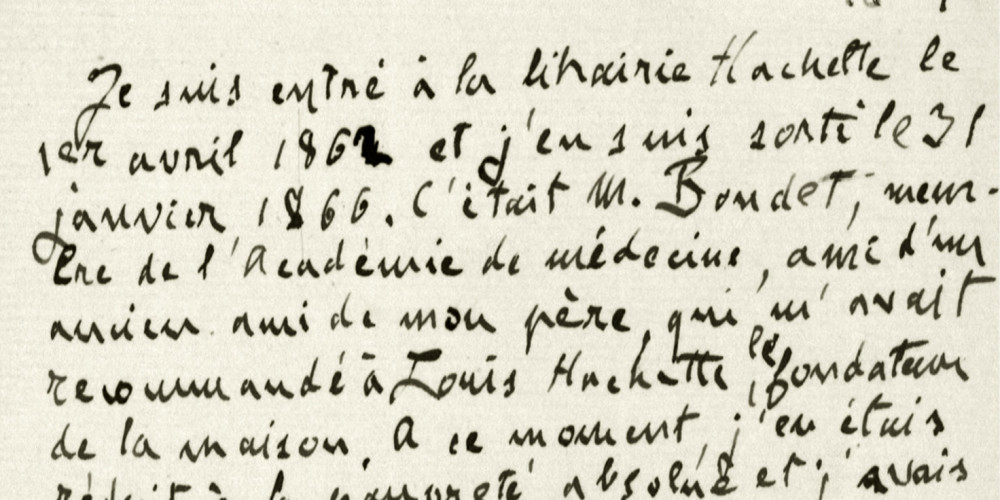 Je suis entré à la librairie Hachette le
1er avril 1862 et j'en suis sorti le 31
janvier 1866. C'était M. Boudet, mem-
bre de l'Académie de médecine, ami d'un
ancien ami de mon père, qui m'avait
recommandé à Louis Hachette, le fondateur
de la maison. A ce moment, j'en étais
réduit à la pauvreté absolue et j'avais